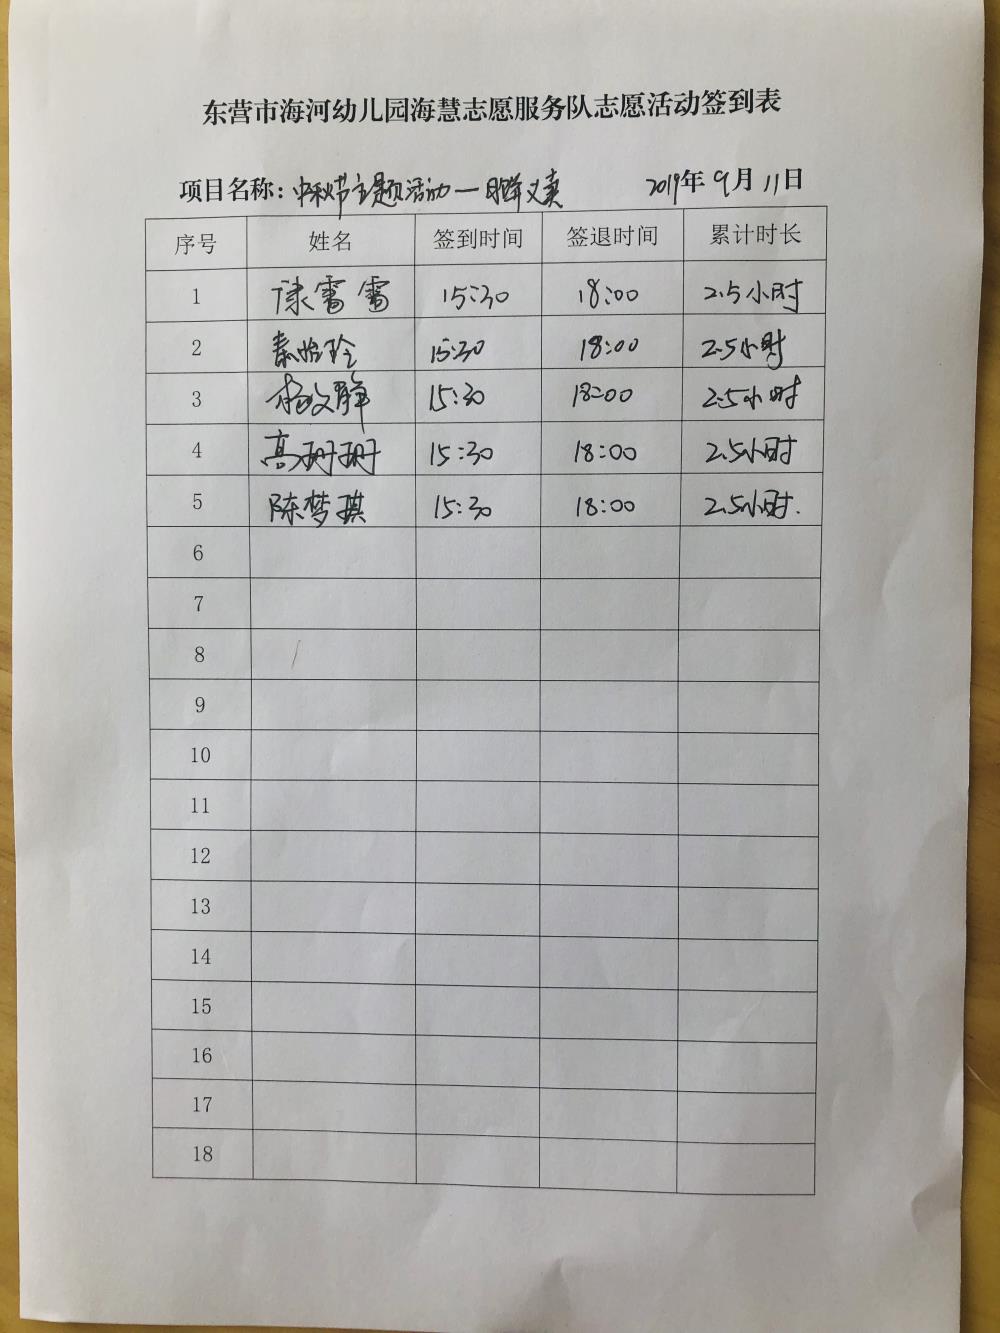 东营市海河幼儿园海慧志愿服务队志愿活动签到表
项目名称：中秋节主题活动一 义卖 2019年9月11日
序号 姓名 签到时间 签退时间 累计时长
1 雷雷 15:30 18:00 2.5小时
2 秦怡玲 15:30 18:00 2.5小时
3 杨文静 15:30 18:00 2.5小时
4 高珊珊 15:30 18:00 2.5小时
5 陈梦琪 15:30 18:00 2.5小时.
6
7
8
9
10
11
12
13
14
15
16
17
18